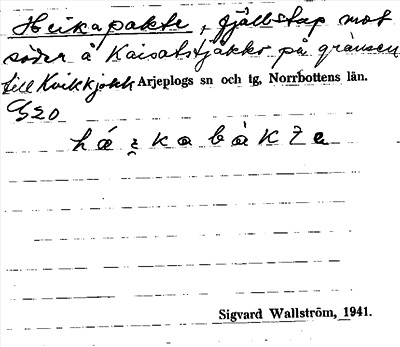 Heikapakte, fjällstup mot
söder å Kaisatstjåkko på gränsen
till Kvikkjokk Arjeplogs sn och tg, Norrbottens län.
G20
há̱i̭kabàkte
Sigvard Wallström, 1941.